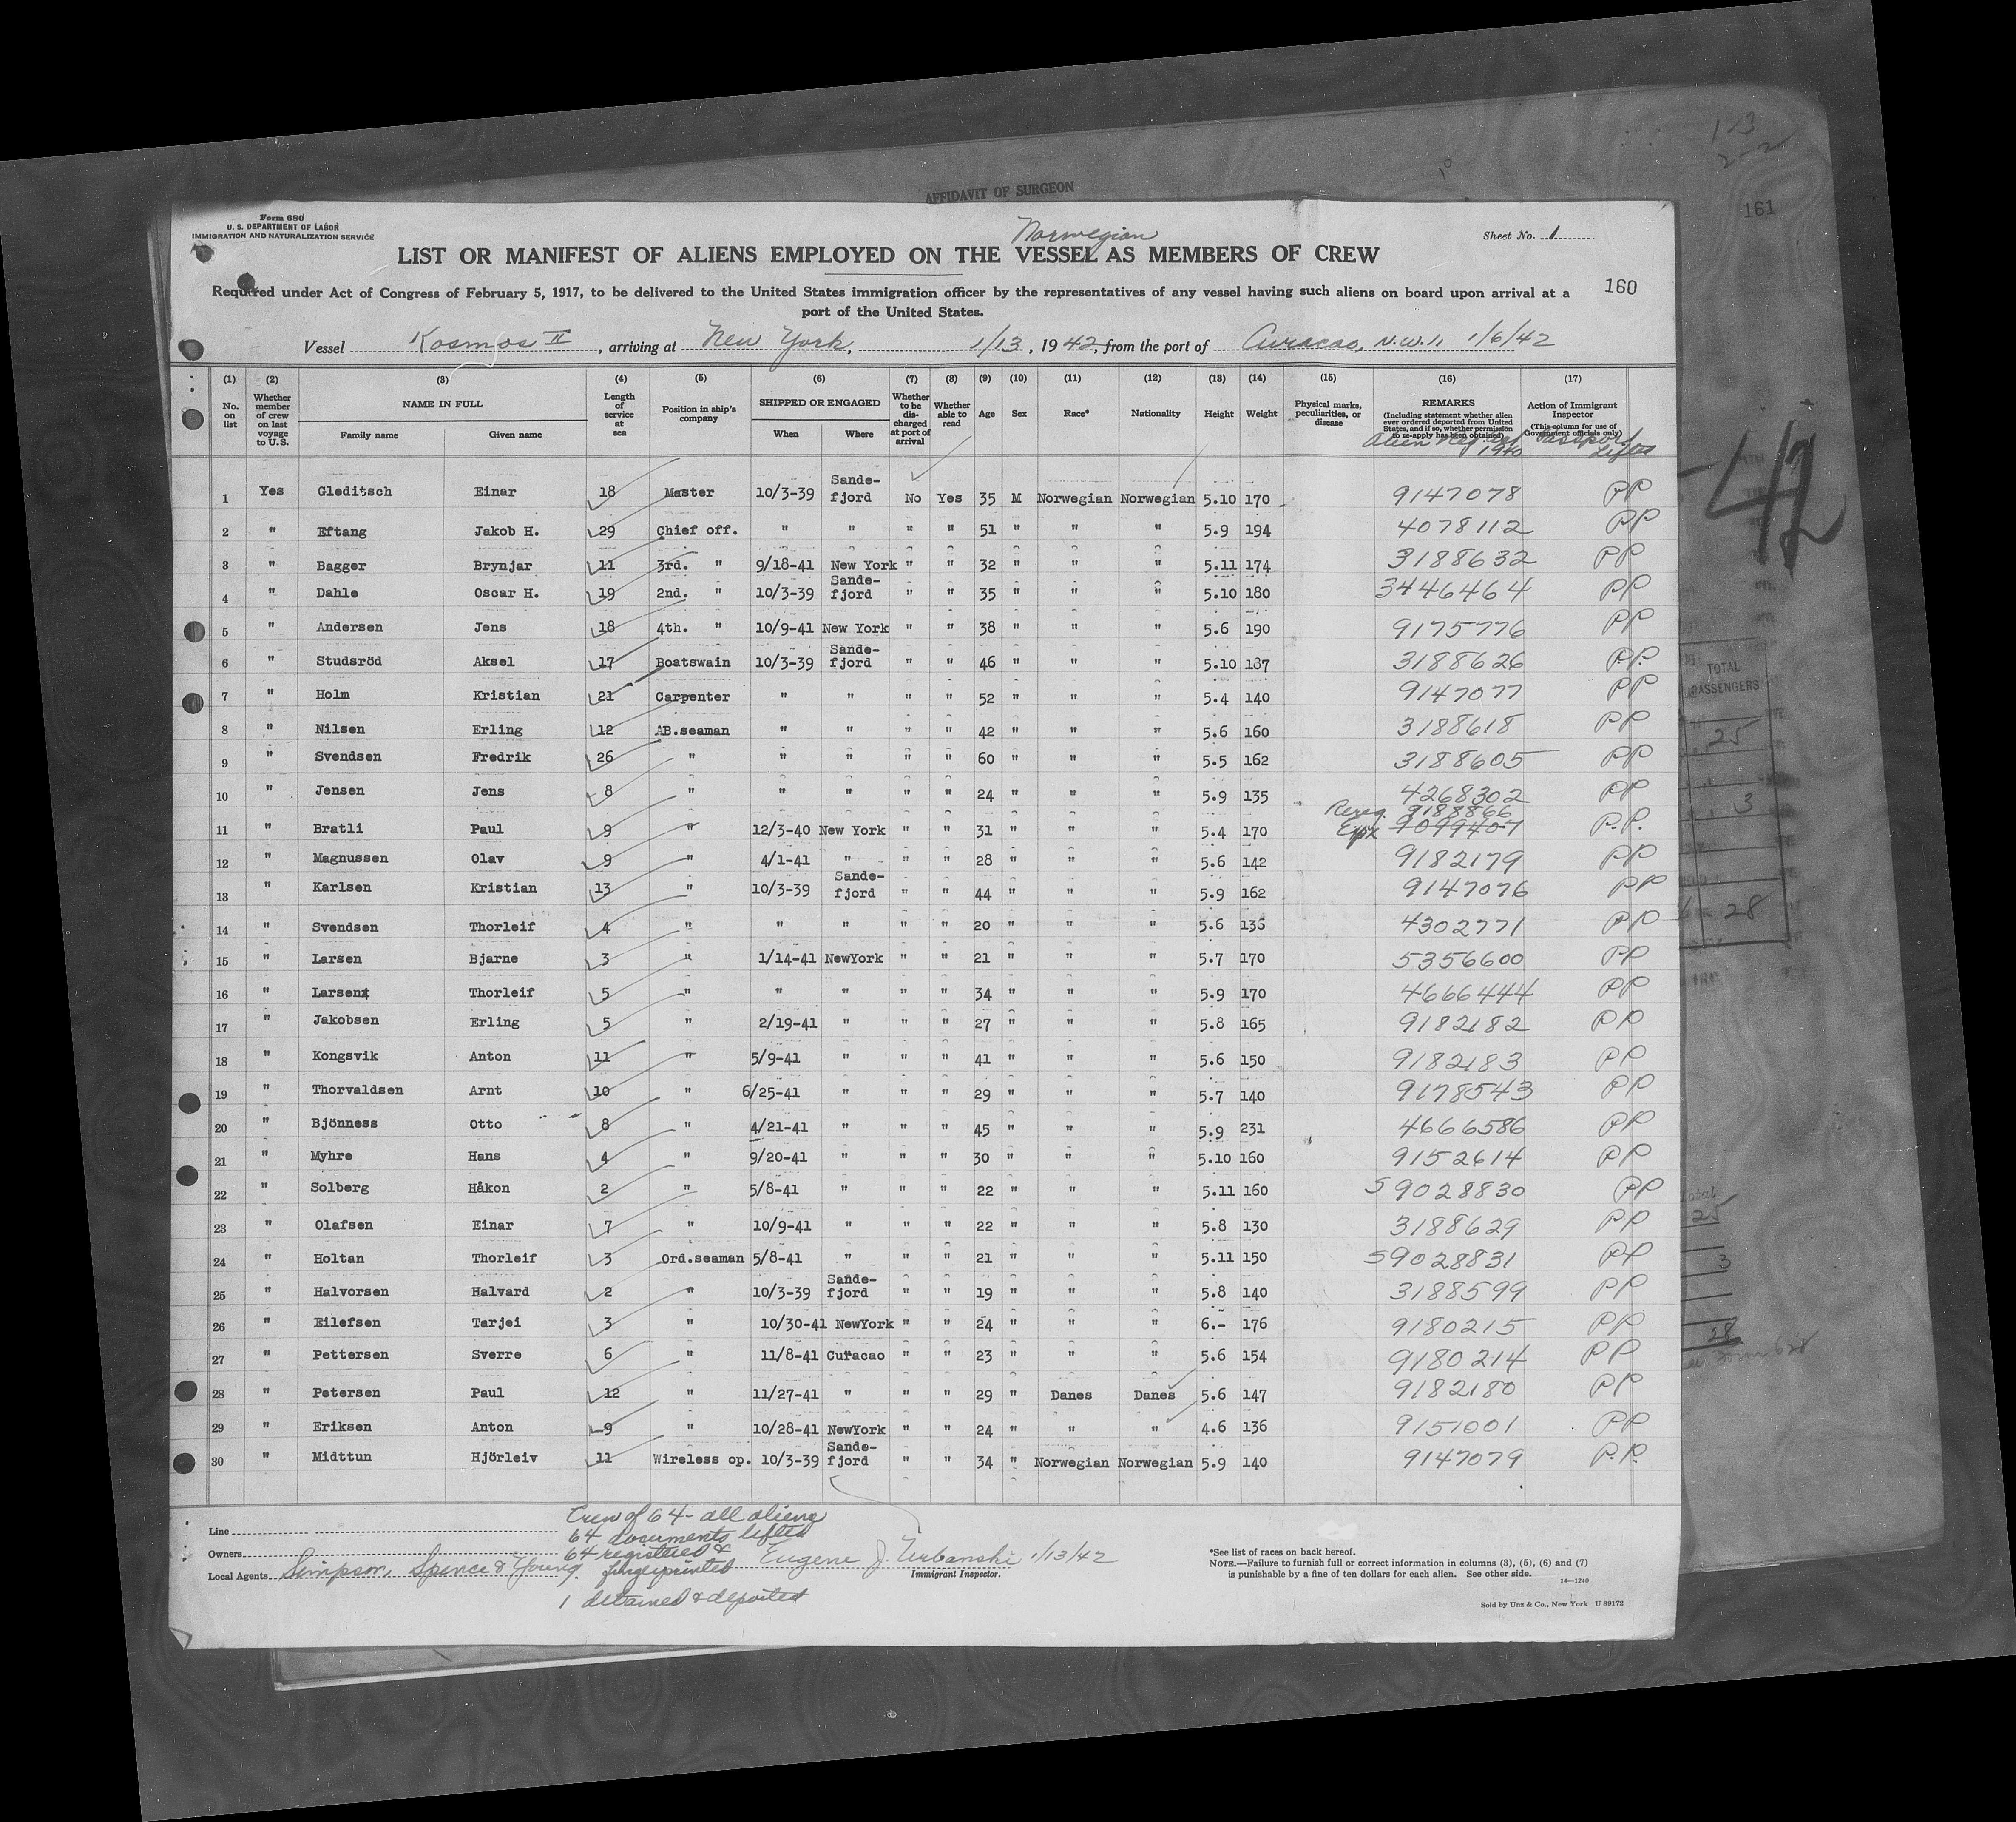 AFFIDAVIT OF SURGEON
161
Form 680
U. S. DEPARTMENT OF LABOR
IMMIGRATION AND NATURALIZATION SERVICE
Norwegian
Sheet No. 1
LIST OR MANIFEST OF ALIENS EMPLOYED ON THE VESSEL AS MEMBERS OF CREW
160
Required under Act of Congress of February 5, 1917, to be delivered to the United States immigration officer by the representatives of any vessel having such aliens on board upon arrival at a
port of the United States.
Vessel Kosmos II, arriving at New York, 1/13, 1942, from the port of Curacao, N.W.I. 1/6/42
(1) (2) (3) (4) (5) (6) (7) (8) (9) (10) (11) (12) (13) (14) (15) (16) (17)
No. on list
Whether member of crew on last voyage to U.S.
NAME IN FULL
Family name Given name
Length of service at sea
Position in ship's company
SHIPPED OR ENGAGED
When Where
Whether to be discharged at port of arrival
Whether able to read
Age Sex Race* Nationality Height Weight
Physical marks, peculiarities, or disease
REMARKS
(Including statement whether alien ever ordered deported from United States, and if so, whether permission to re-apply has been obtained)
Action of Immigrant Inspector
(This column for use of Government officials only)
1940
Passport Lifted
1 Yes Gleditsch Einar 18 Master 10/3-39 Sande-fjord No Yes 35 M Norwegian Norwegian 5.10 170 9147078 PP
2 " Eftang Jakob H. 29 Chief off. " " " " 51 " " " 5.9 194 4078112 PP
3 " Bagger Brynjar 11 3rd. " 9/18-41 New York " " 32 " " " 5.11 174 3188632 PP
4 " Dahle Oscar H. 19 2nd. " 10/3-39 Sande-fjord " " 35 " " " 5.10 180 3446464 PP
5 " Andersen Jens 18 4th. " 10/9-41 New York " " 38 " " " 5.6 190 9175776 PP
6 " Studsröd Aksel 17 Boatswain 10/3-39 Sande-fjord " " 46 " " " 5.10 187 3188626 P.P.
7 " Holm Kristian 21 Carpenter " " " " 52 " " " 5.4 140 9147077 PP
8 " Nilsen Erling 12 AB.seaman " " " " 42 " " " 5.6 160 3188618 PP
9 " Svendsen Fredrik 26 " " " " " 60 " " " 5.5 162 3188605 PP
10 " Jensen Jens 8 " " " " " 24 " " " 5.9 135 4268302 PP
Rereg. 9183866
11 " Bratli Paul 9 " 12/3-40 New York " " 31 " " " 5.4 170 9099407 P.P.
12 " Magnussen Olav 9 " 4/1-41 " " " 28 " " " 5.6 142 9182179 PP
13 " Karlsen Kristian 13 " 10/3-39 Sande-fjord " " 44 " " " 5.9 162 9147076 PP
14 " Svendsen Thorleif 4 " " " " " 20 " " " 5.6 136 4302771 PP
15 " Larsen Bjarne 3 " 1/14-41 NewYork " " 21 " " " 5.7 170 5356600 PP
16 " Larsen Thorleif 5 " " " " " 34 " " " 5.9 170 4666444 PP
17 " Jakobsen Erling 5 " 2/19-41 " " " 27 " " " 5.8 165 9182182 PP
18 " Kongsvik Anton 11 " 5/9-41 " " " 41 " " " 5.6 150 9182183 PP
19 " Thorvaldsen Arnt 10 " 6/25-41 " " " 29 " " " 5.7 140 9178543 PP
20 " Bjönness Otto 8 " 4/21-41 " " " 45 " " " 5.9 231 4666586 PP
21 " Myhre Hans 4 " 9/20-41 " " " 30 " " " 5.10 160 9152614 PP
22 " Solberg Håkon 2 " 5/8-41 " " " 22 " " " 5.11 160 59028830 PP
23 " Olafsen Einar 7 " 10/9-41 " " " 22 " " " 5.8 130 3188629 PP
24 " Holtan Thorleif 3 Ord.seaman 5/8-41 " " " 21 " " " 5.11 150 59028831 PP
25 " Halvorsen Halvard 2 " 10/3-39 Sande-fjord " " 19 " " " 5.8 140 3188599 PP
26 " Eilefsen Tarjei 3 " 10/30-41 NewYork " " 24 " " " 6.- 176 9180215 PP
27 " Pettersen Sverre 6 " 11/8-41 Curacao " " 23 " " " 5.6 154 9180214 PP
28 " Petersen Paul 12 " 11/27-41 " " " 29 " Danes Danes 5.6 147 9182180 PP
29 " Eriksen Anton 9 " 10/28-41 NewYork " " 24 " " " 4.6 136 9151001 PP
30 " Midttun Hjörleiv 11 Wireless op. 10/3-39 Sande-fjord " " 34 " Norwegian Norwegian 5.9 140 9147079 P.P.
Crew of 64 - all aliens
Line
64 documents lifted
Owners
64 registered & fingerprinted
Eugene J. Urbanski 1/13/42
Immigrant Inspector.
Local Agents Simpson, Spence & Young
1 detained & deported
*See list of races on back hereof.
NOTE.—Failure to furnish full or correct information in columns (3), (5), (6) and (7)
is punishable by a fine of ten dollars for each alien. See other side.
14—1240
Sold by Unz & Co., New York U 89172
42
TOTAL
PASSENGERS
25
3
28
Total
25
3
28